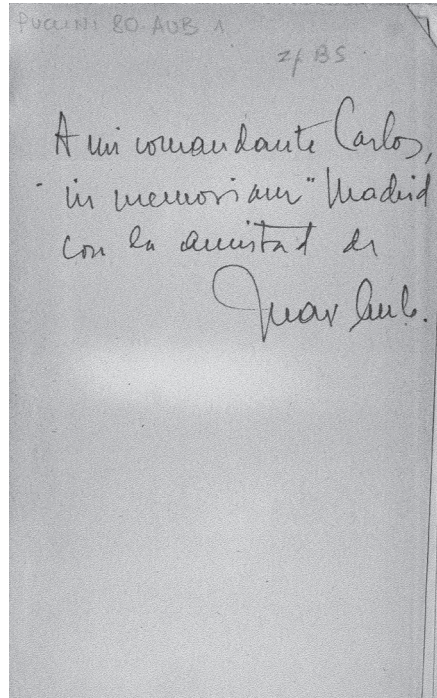 PUCCINI 80. AUB 1
A mi comandante Carlos,
"in memoriam" Madrid
con la amistad de
Max Aub.